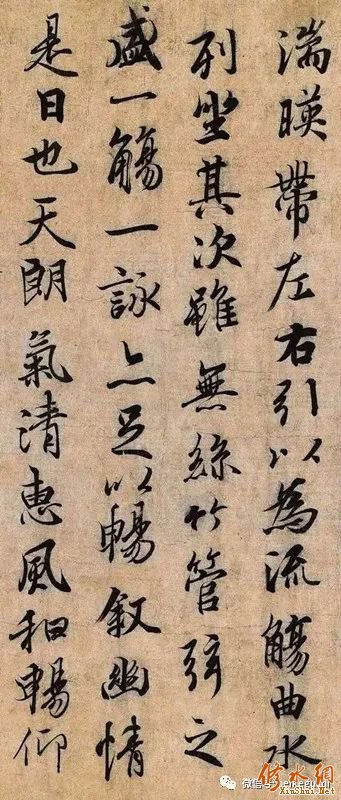 湍暎帶左右引以為流觴曲水
列坐其次雖無絲竹管弦之
盛一觴一詠亦足以暢叙幽情
是日也天朗氣清惠風和暢仰
微信号:
修水網
XiuShui.Net